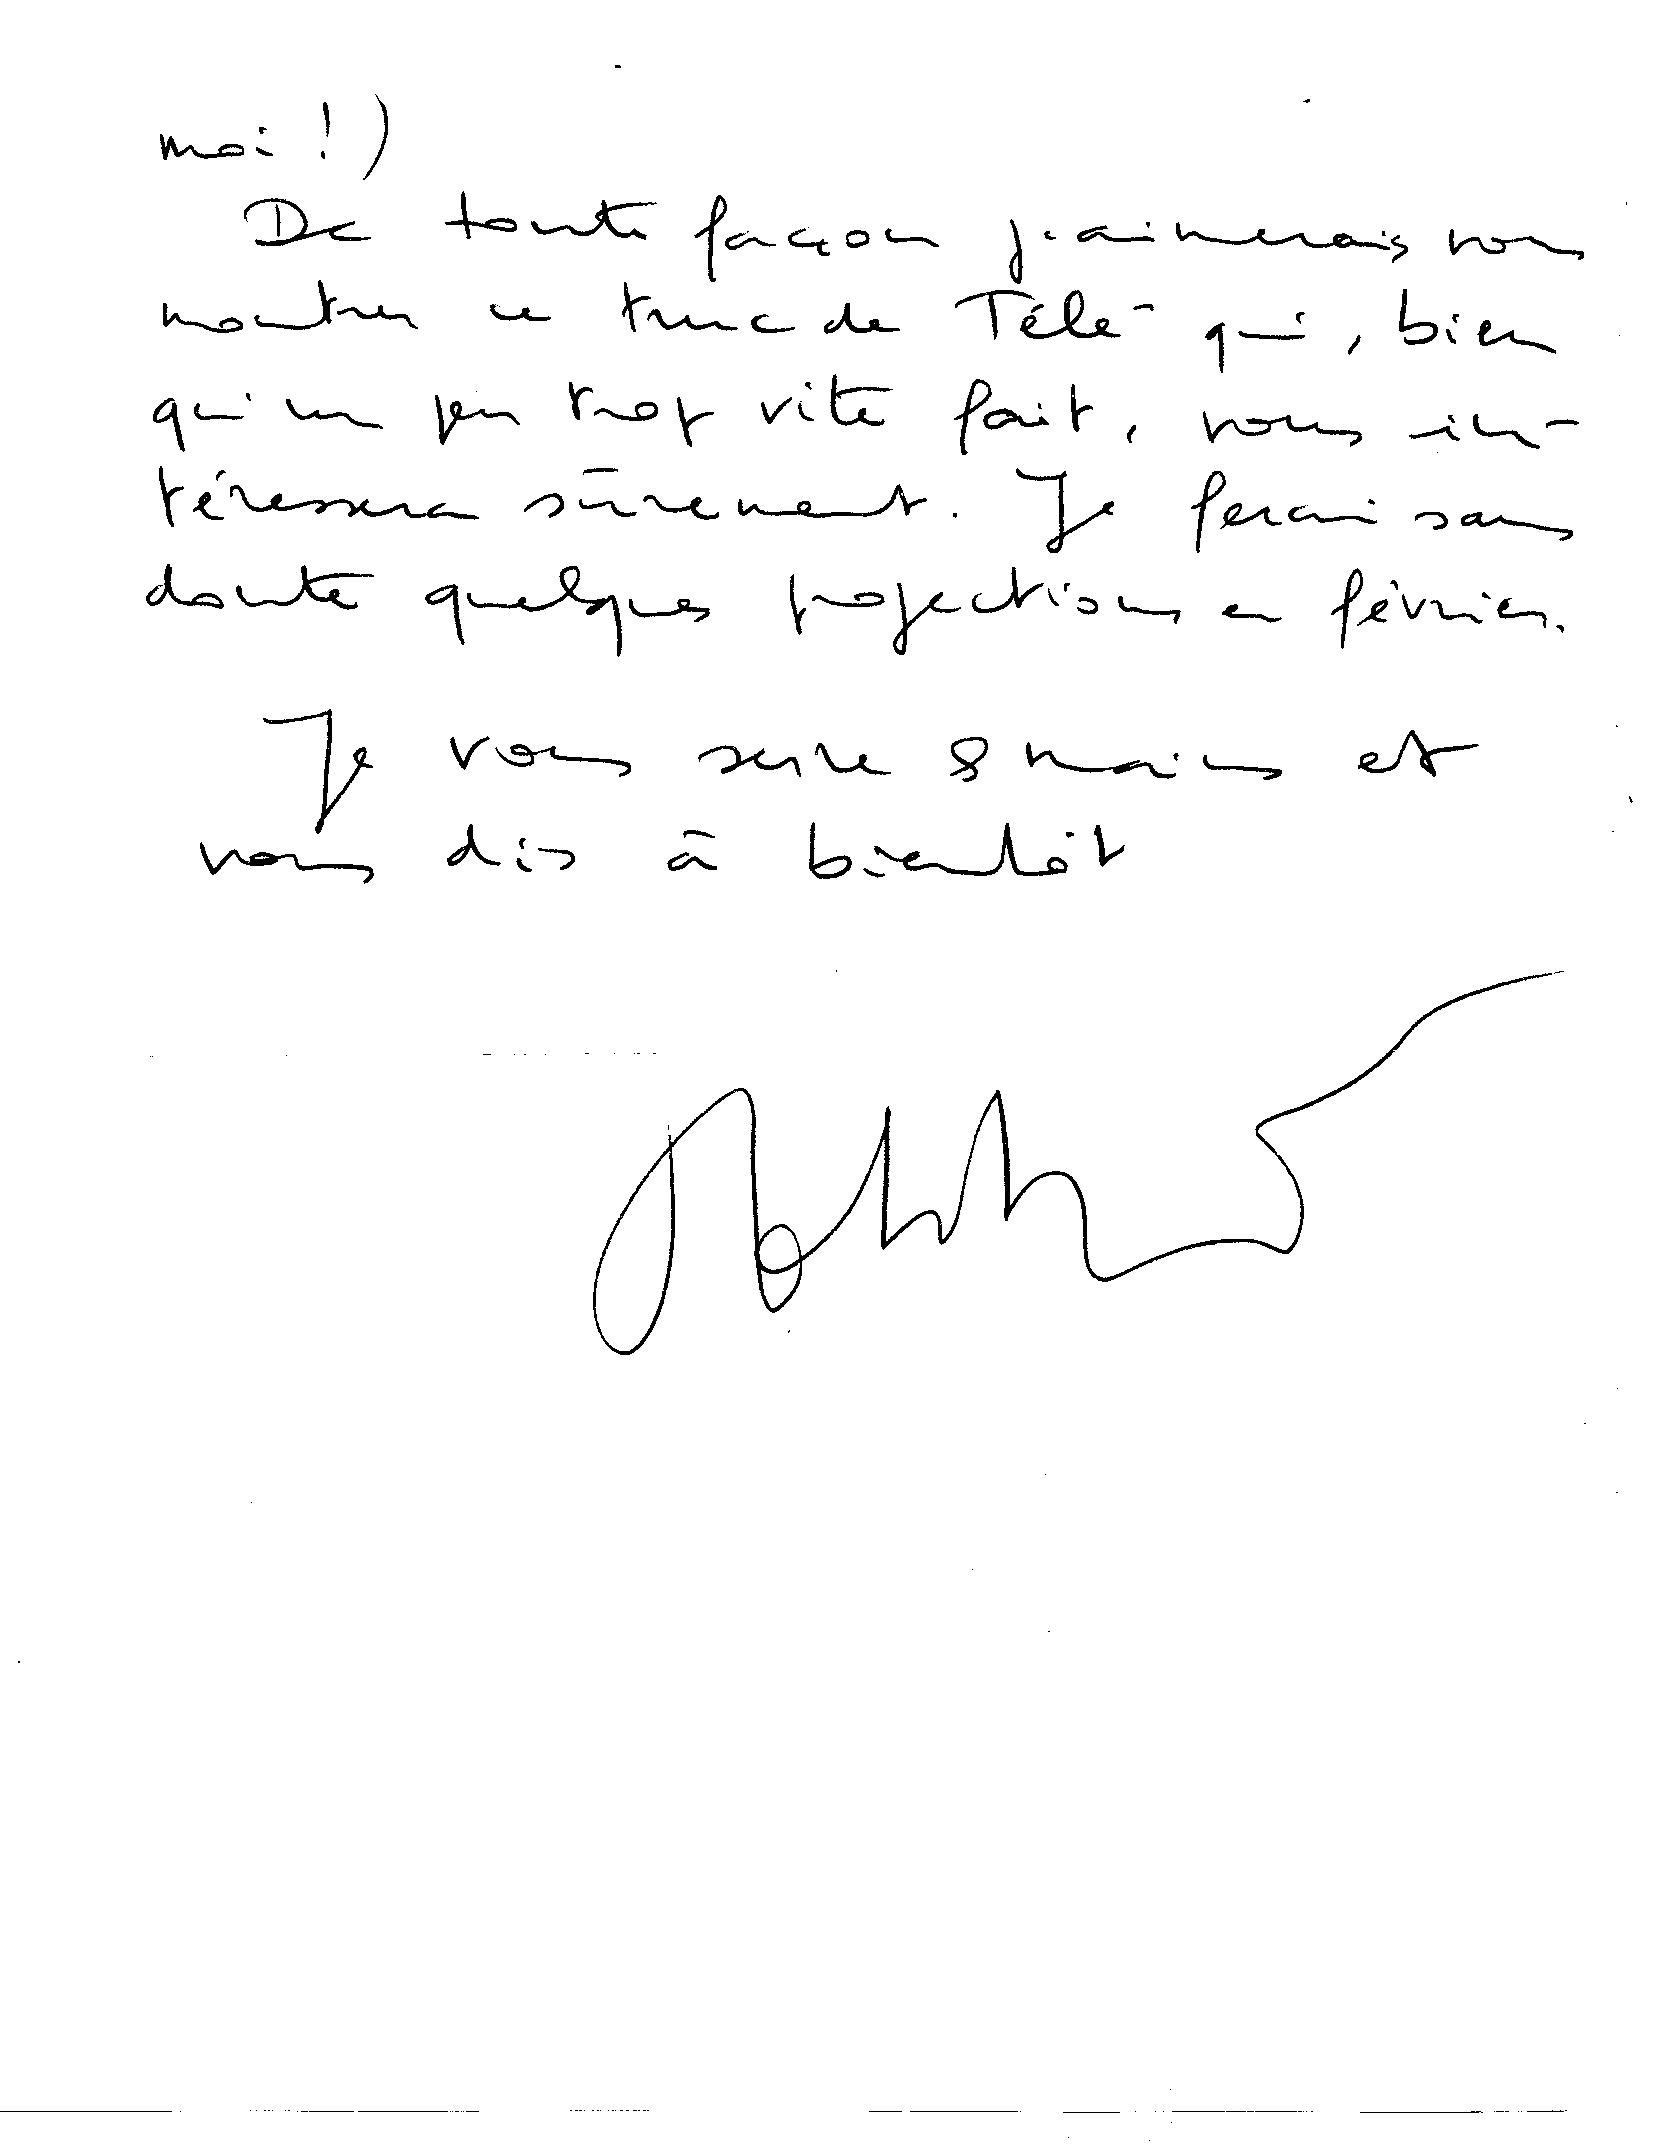 moi !)
De toute façon j'aimerais vous
montrer ce truc de Télé qui, bien
qu'un peu trop vite fait, vous in-
téressera sûrement. Je ferai sans
doute quelques projections en février.
Je vous serre 8 mains et
vous dis à bientôt